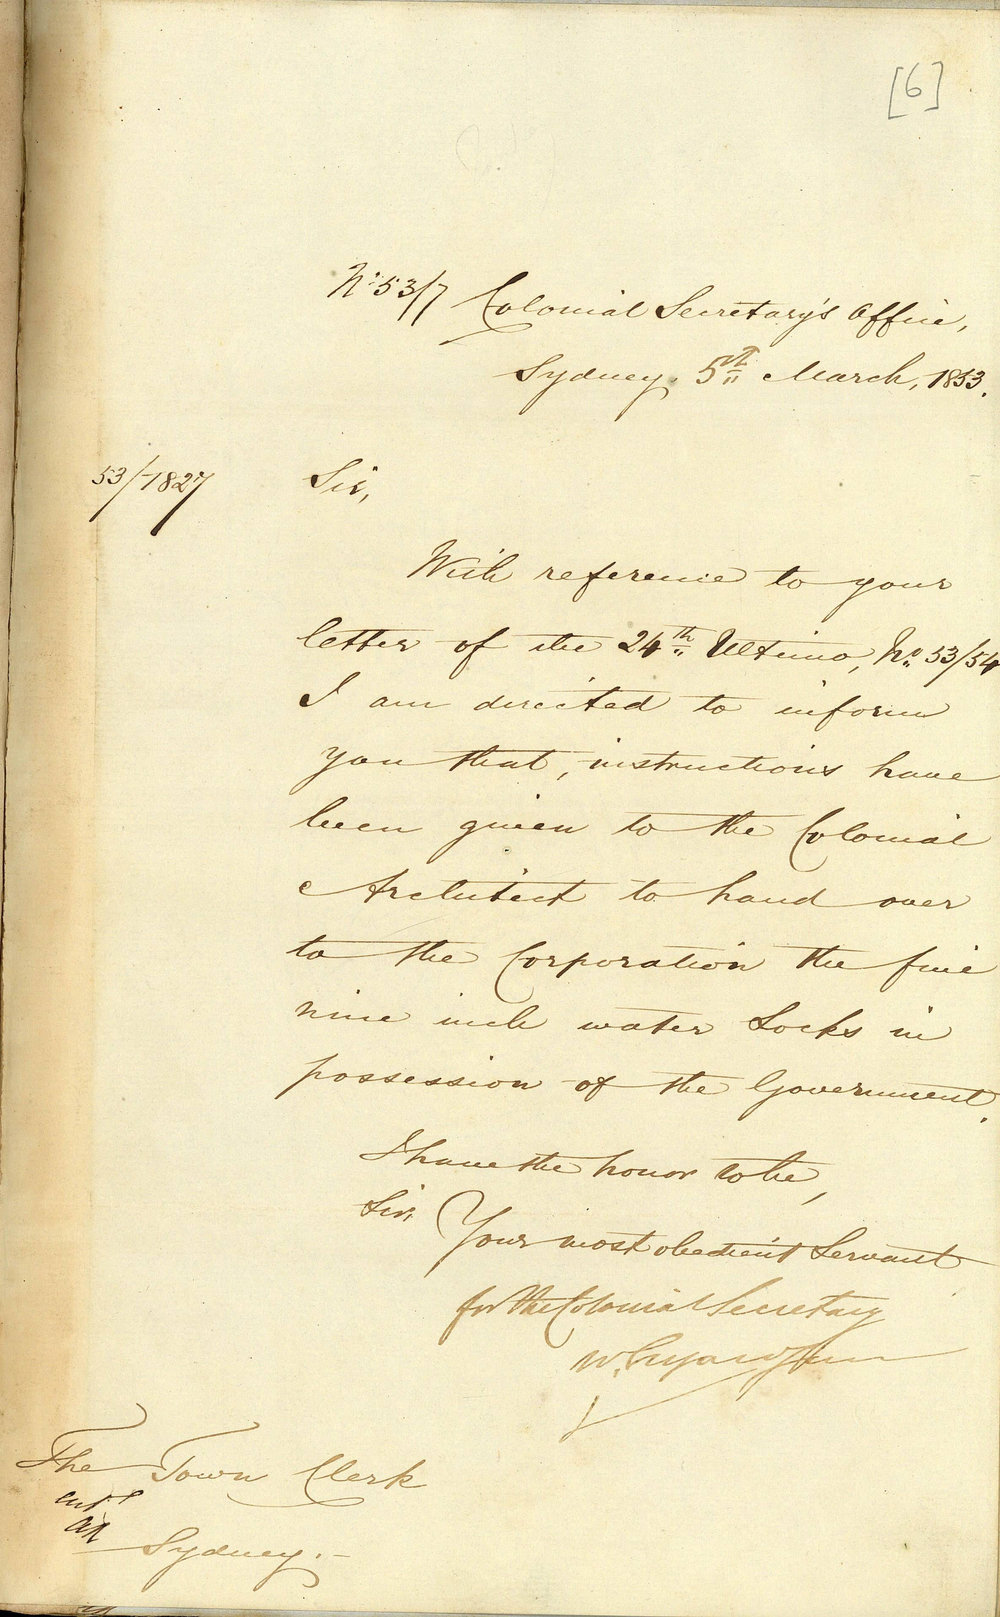 [6]
No 53/7 Colonial Secretary's Office,
Sydney. 5th March, 1853.
53/1827
Sir,
With reference to your
letter of the 24th Ultimo, No 53/54
I am directed to inform
you that, instructions have
been given to the Colonial
Architect to hand over
to the Corporation the five
nine inch water Locks in
possession of the Government.
I have the honor to be,
Sir,
Your most obedient Servant
for the Colonial Secretary
W.
The Town Clerk
Sydney.